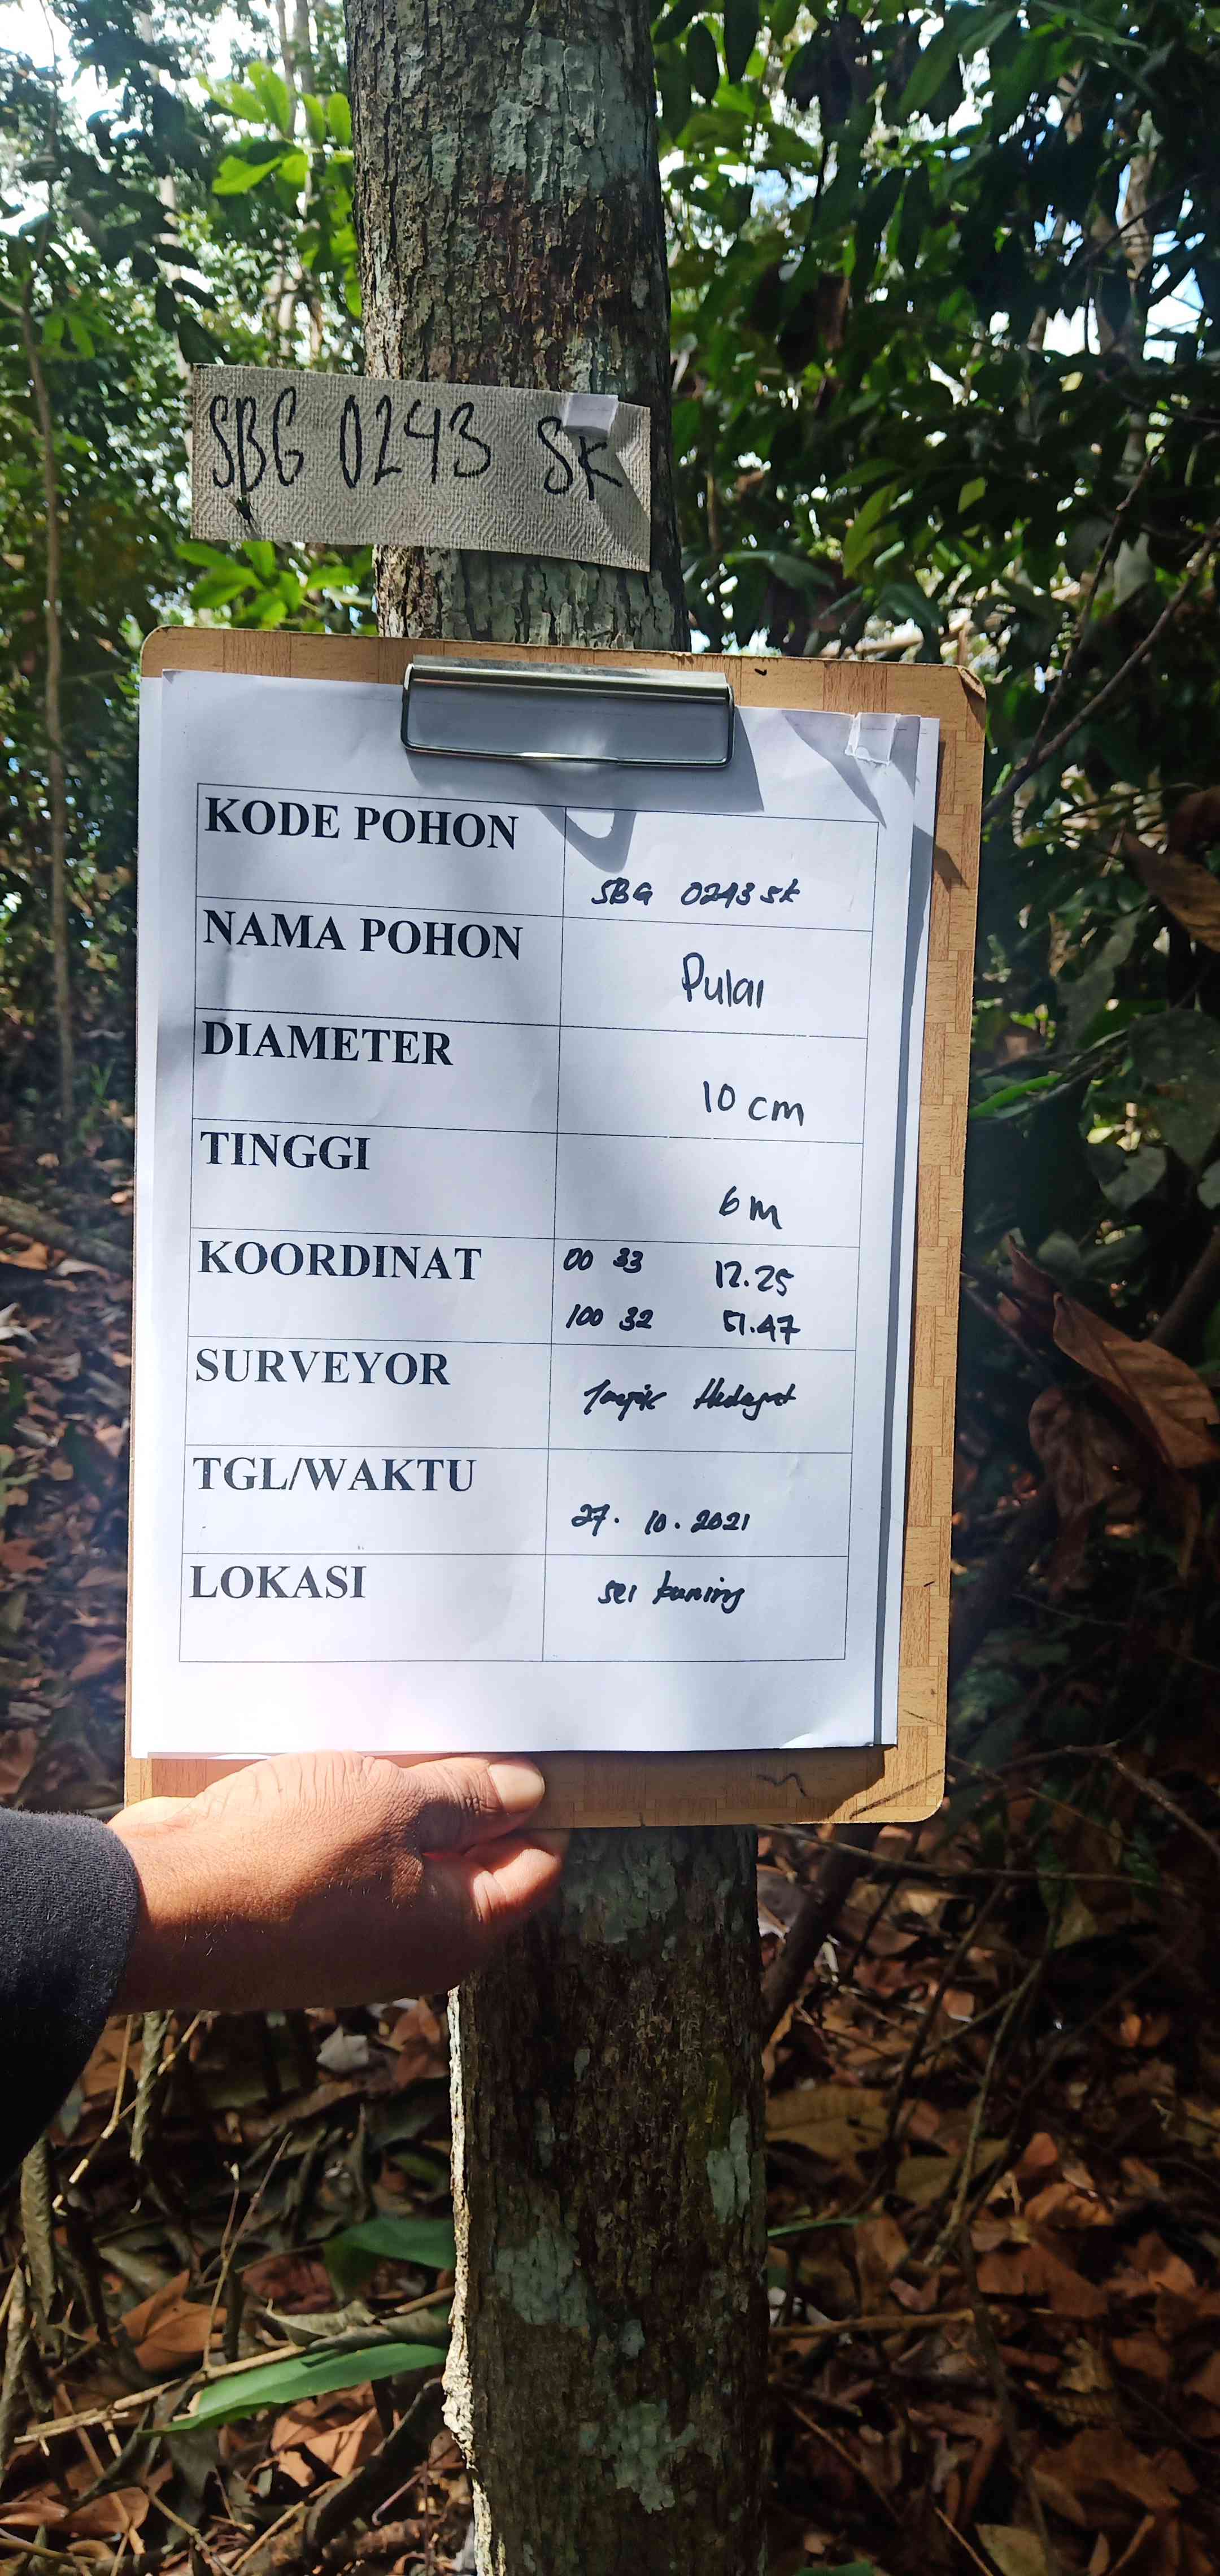 SBG 0243 SK
KODE POHON
SBG 0243 SK
NAMA POHON
Pulai
DIAMETER
10 cm
TINGGI
6 m
KOORDINAT
00 33 12.25
100 32 51.47
SURVEYOR
Hidayat
TGL/WAKTU
27. 10. 2021
LOKASI
sei kuning